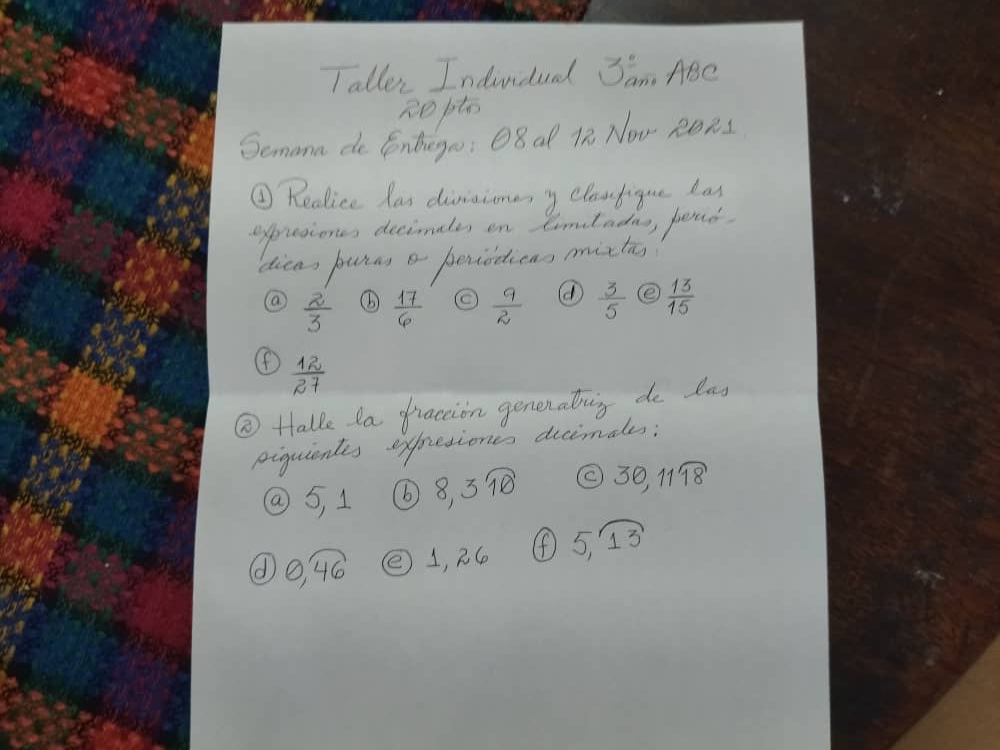 Taller Individual 3° año ABC
20 ptos
Semana de Entrega: 08 al 12 Nov 2021
① Realice las divisiones y clasifique las
expresiones decimales en limitadas, perió-
dicas puras o periódicas mixtas.
ⓐ 2/3 ⓑ 17/6 ⓒ 9/2 ⓓ 3/5 ⓔ 13/15
ⓕ 12/27
② Halle la fracción generatriz de las
siguientes expresiones decimales:
ⓐ 5,1 ⓑ 8,3͡10 ⓒ 30,111͡8
ⓓ 0,4͡6 ⓔ 1,26 ⓕ 5,1͡3